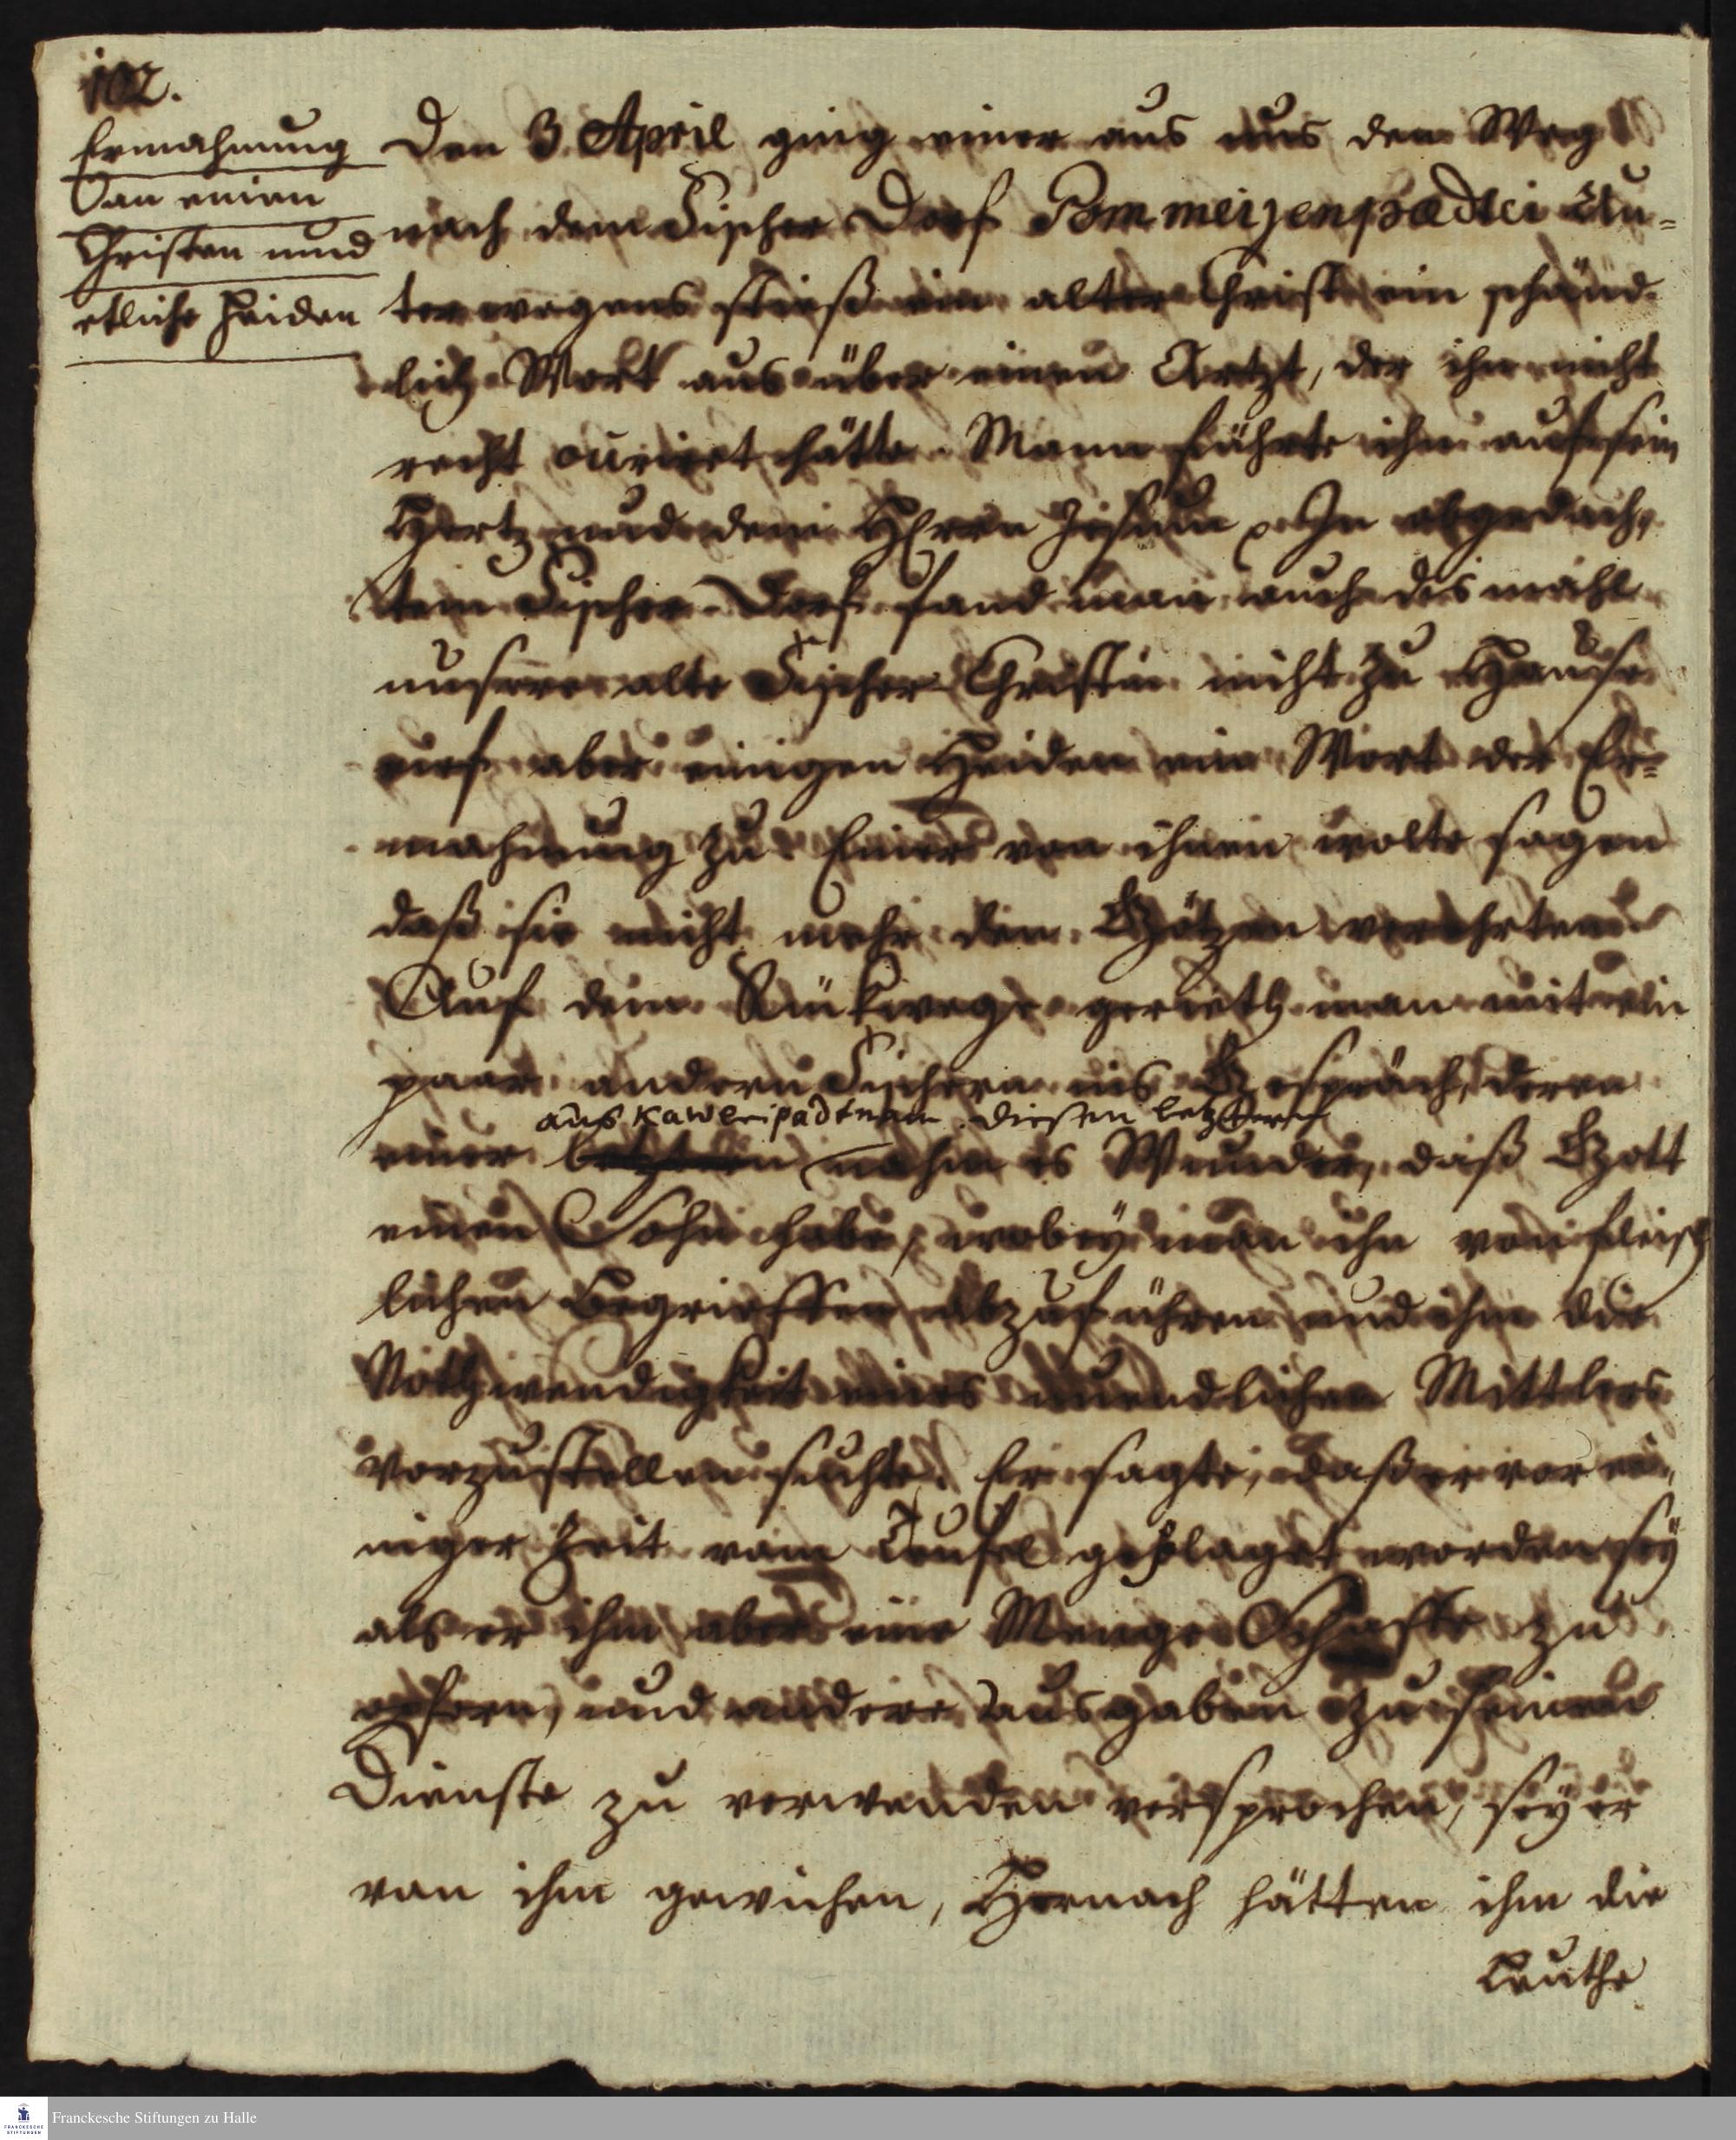 102.
Ermahnung
an einen
Christen und
etliche Heiden
Den 3. April ging einer aus uns den Weg
nach dem Fischer Dorf Pommeijenpædtei Un-
terwegens stieß ein alter Christ ein schänd-
lich Wort aus über einen Artzt, der ihn nicht
recht curiret hätte. Mann führte ihn auf sein
Hertz und dem HErrn Jesum. In obgedach-
tem Fischer-Dorf fand man auch dismahl
unsere alte Fischer-Christin nicht zu Hause
rief aber einigen Heiden ein Wort der Er-
mahnung zu. Einer von ihnen wolte sagen
daß sie nicht mehr den Götzen verehrten
Auf dem Rükwege gerieth man mit ein
paar andern Fischern ins Gespräch, deren
aus Kaweripadtnam. diesen letztern
einer nahm es Wunder, daß Gott
einen Sohn habe, wobey man ihn von fleisch
lichen Begrieffen abzuführen und ihm die
Nothwendigkeit eines unendlichen Mittlers
vorzustellen suchte. Er sagte, daß er vor ei-
niger Zeit vom Teufel geplaget worden sey
als er ihm aber eine Menge Schafe zu
opfern, und andere Ausgaben zu seinem
Dienste zu verwenden versprochen, sey er
von ihm gewichen, Hernach hätten ihm die
Leuthe
Franckesche Stiftungen zu Halle